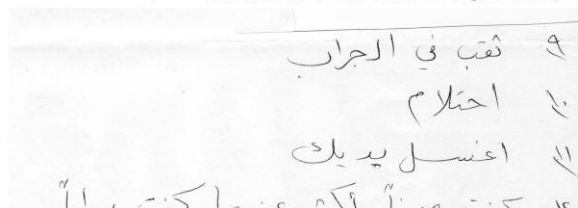 ٩) ثقب في الجراب
١٠) احتلام
١١) اغسل يديك